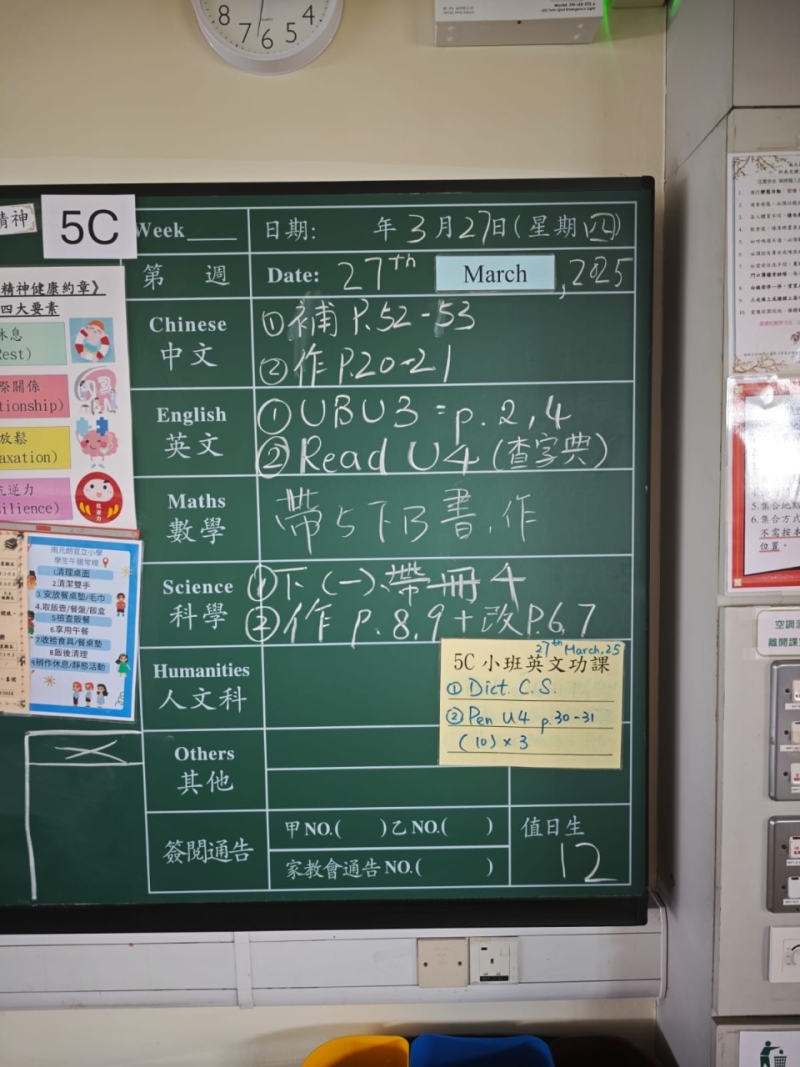 8 7 6 5 4
精神
5C
Week____ 日期: 年3月27日(星期四)
第 週 Date: 27th March, 2025
精神健康約章》
四大要素
休息
Rest)
際關係
tionship)
放鬆
axation)
抗逆力
silience)
Chinese
中文
①補 P.52-53
②作 P.20-21
English
英文
①UBU3 = p. 2, 4
②Read U4 (查字典)
Maths
數學
帶5下B書、作
Science
科學
①下(一)、帶冊4
②作 p. 8, 9 + 改P.6, 7
Humanities
人文科
27th March, 25
5C 小班英文功課
① Dict. C.S.
② Pen U4 p.30-31
(10) x 3
Others
其他
簽閱通告
甲NO.( )乙NO.( )
家教會通告NO.( )
值日生
12
學生午膳常規
1.清理桌面
2.清潔雙手
3.安放餐桌墊/毛巾
4.取飯壺/餐盤/飯盒
5.檢查飯餐
6.享用午餐
7.收拾食具/餐桌墊
8.飯後清理
9.稍作休息/靜態活動
5.集合地點
6.集合方式
不需按本
位置。
離開課室